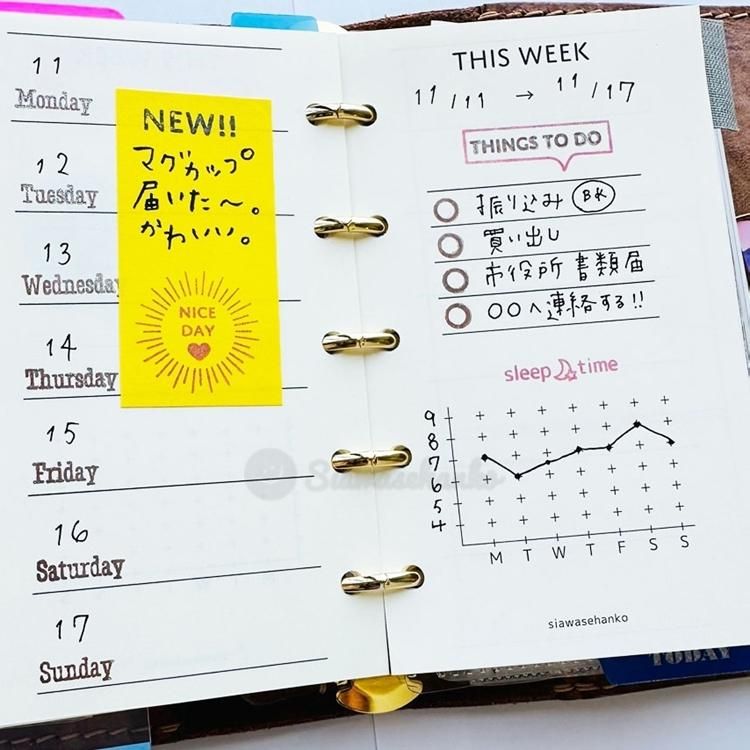 11
Monday
12
Tuesday
13
Wednesday
14
Thursday
15
Friday
16
Saturday
17
Sunday
NEW!!
マグカップ
届いた〜。
かわいい。
NICE
DAY
THIS WEEK
11/11 → 11/17
THINGS TO DO
振り込み BK
買い出し
市役所 書類届
〇〇へ連絡する!!
sleep time
9
8
7
6
5
4
M T W T F S S
siawasehanko
Siawasehanko
TODAY